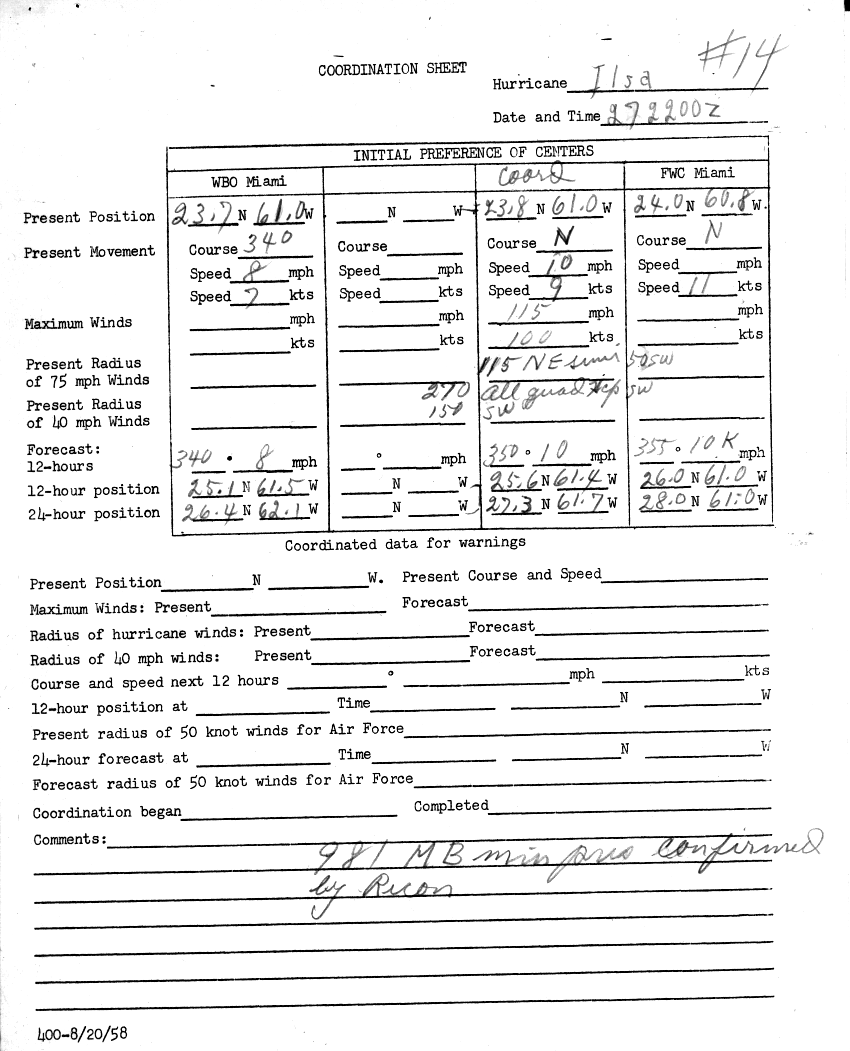 #14
COORDINATION SHEET
Hurricane Ilsa
Date and Time 272200Z
INITIAL PREFERENCE OF CENTERS
WBO Miami Coord FWC Miami
Present Position 23.7 N 61.0 W N W 23.8 N 61.0 W 24.0 N 60.8 W.
Present Movement Course 340 Course Course N Course N
Speed 8 mph Speed mph Speed 10 mph Speed mph
Speed 7 kts Speed kts Speed 9 kts Speed 11 kts
Maximum Winds mph mph 115 mph mph
kts kts 100 kts. kts
Present Radius 115 NE 50 SW
of 75 mph Winds
Present Radius 270 All quad SW
of 40 mph Winds 150 SW
Forecast:
12-hours 340 ° 8 mph ° mph 350 ° 10 mph 355 ° 10 K mph
12-hour position 25.1 N 61.5 W N W 25.6 N 61.4 W 26.0 N 61.0 W
24-hour position 26.4 N 62.1 W N W 27.3 N 61.7 W 28.0 N 61.0 W
Coordinated data for warnings
Present Position N W. Present Course and Speed
Maximum Winds: Present Forecast
Radius of hurricane winds: Present Forecast
Radius of 40 mph winds: Present Forecast
Course and speed next 12 hours ° mph kts
12-hour position at Time N W
Present radius of 50 knot winds for Air Force
24-hour forecast at Time N W
Forecast radius of 50 knot winds for Air Force
Coordination began Completed
Comments:
981 MB min pres confirmed
by Recon
400-8/20/58